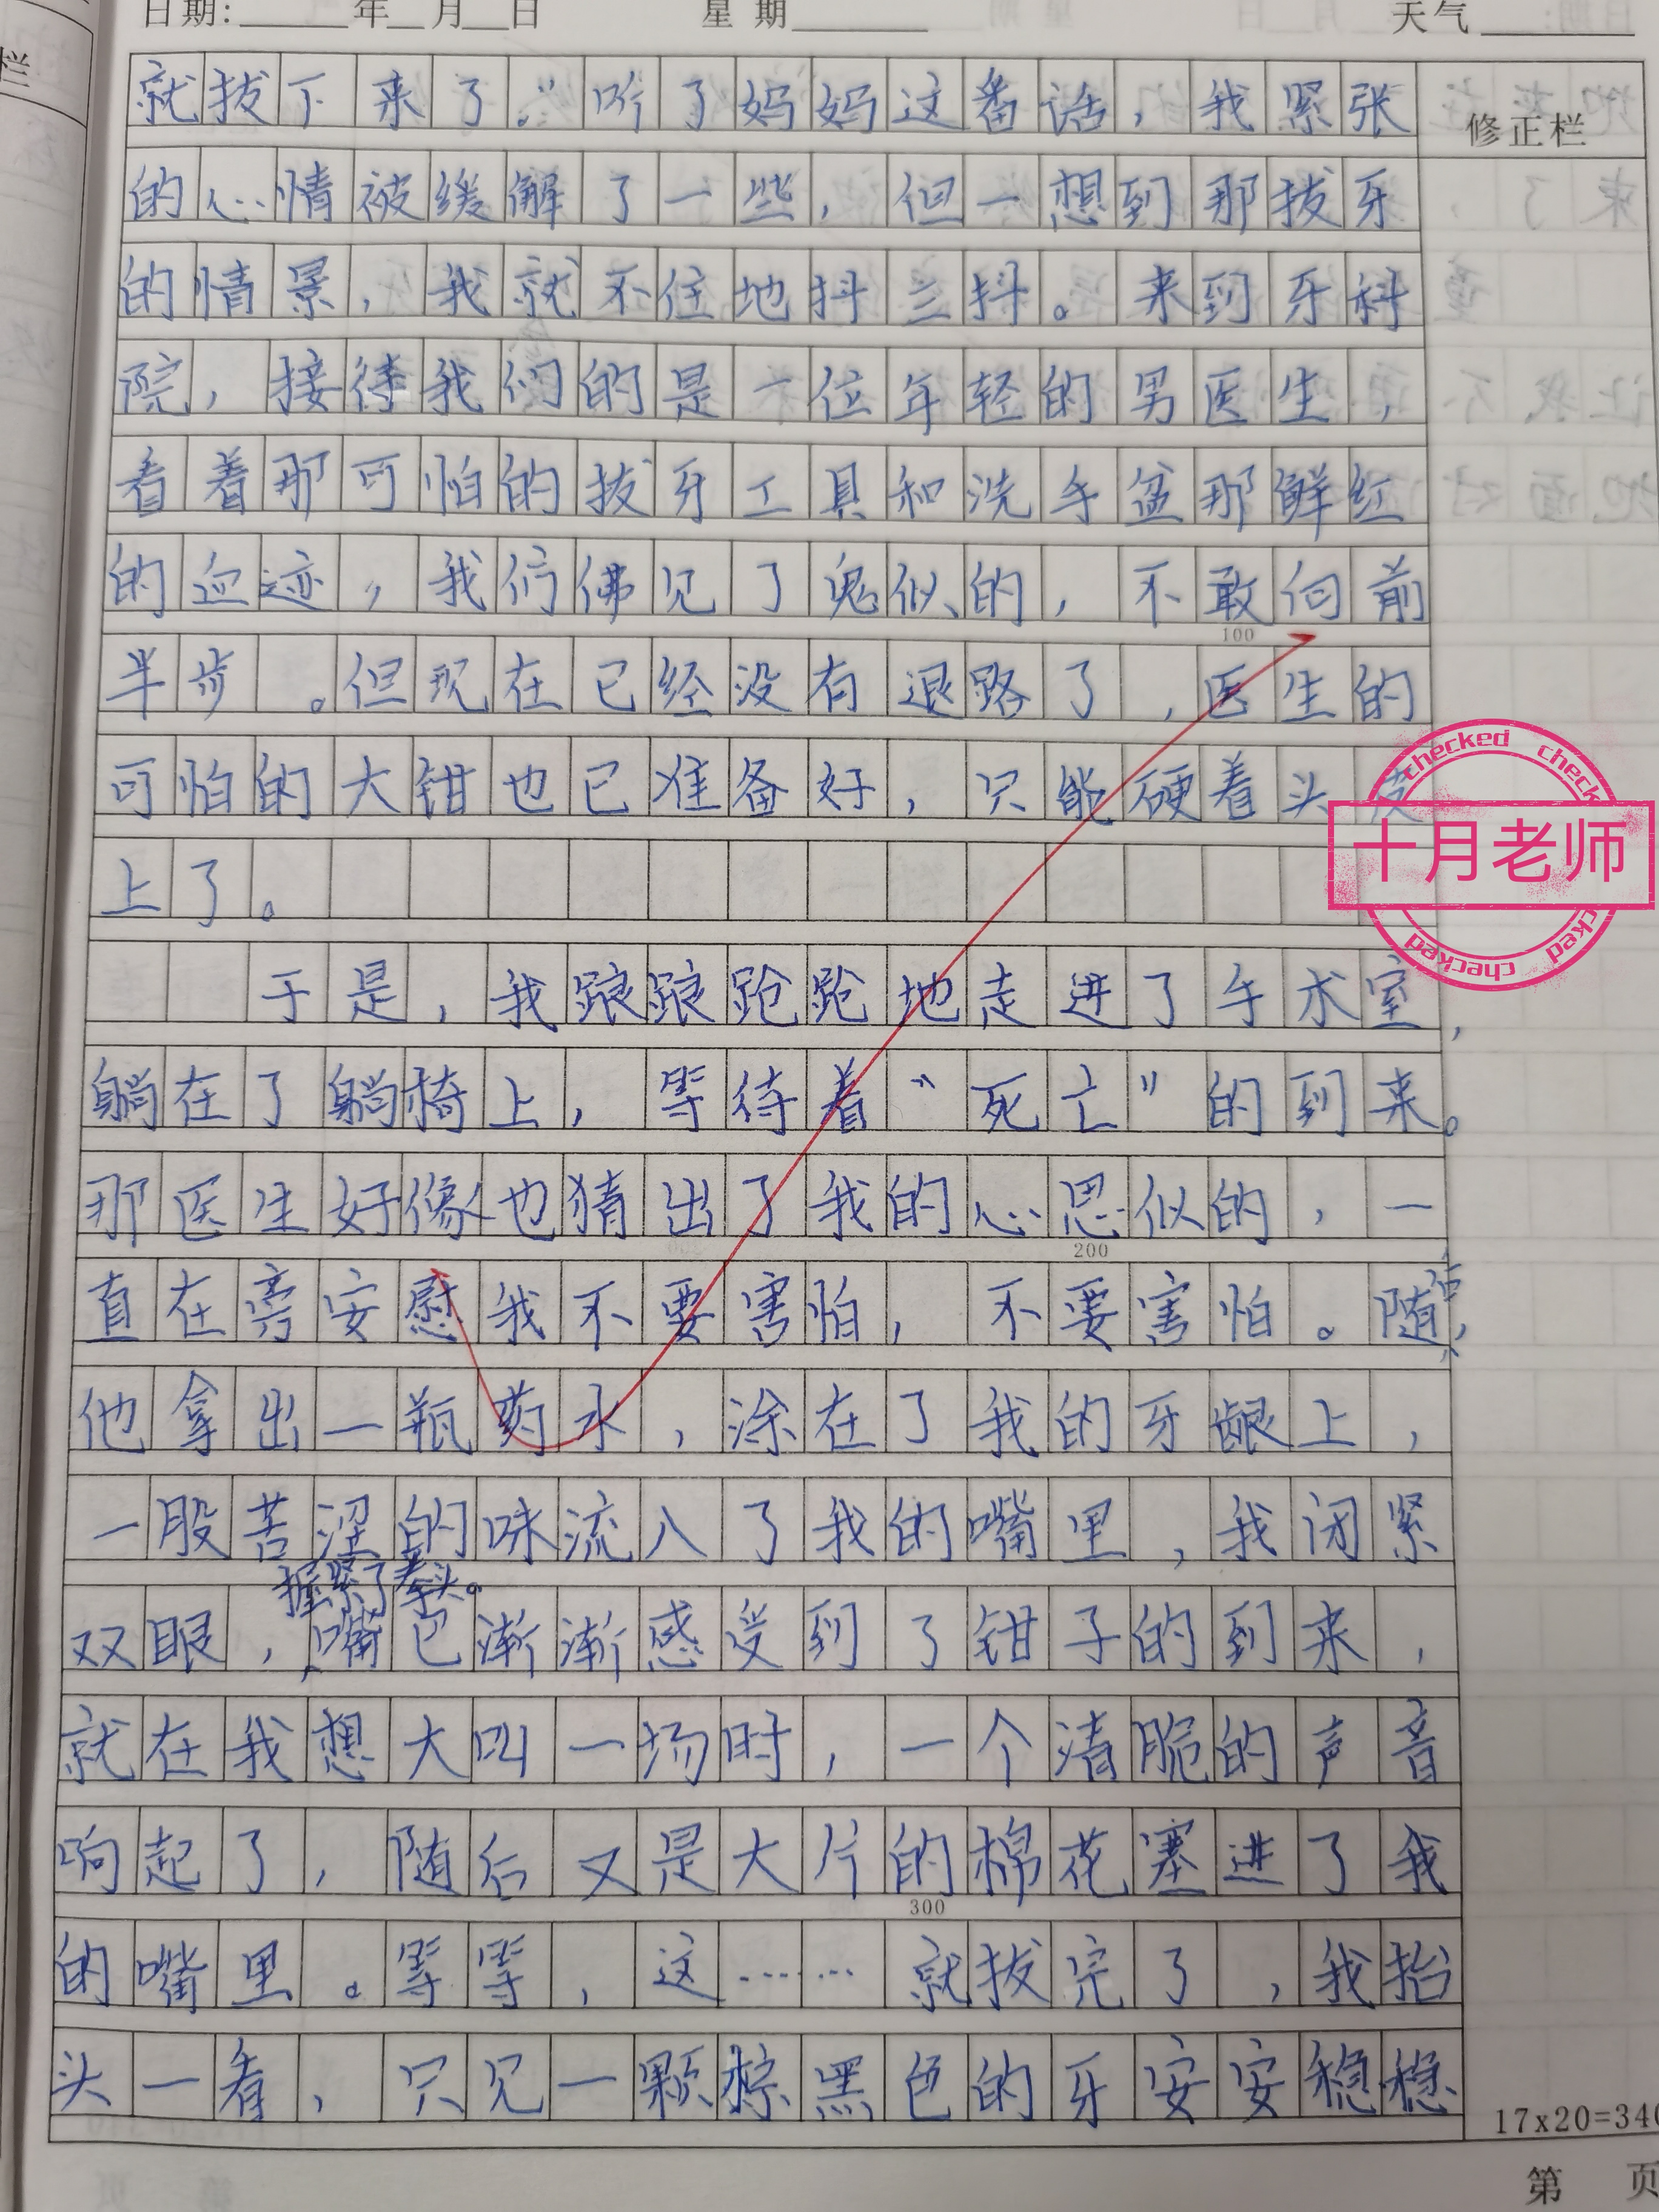 日期: 年 月 日 星期 天气
栏
修正栏
就拔下来了。”听了妈妈这番话，我紧张
的心情被缓解了一些，但一想到那拔牙
的情景，我就不住地抖三抖。来到牙科
院，接待我们的是一位年轻的男医生，
看着那可怕的拔牙工具和洗手盆那鲜红
的血迹，我们佛见了鬼似的，不敢向前
100
半步。但现在已经没有退路了，医生的
可怕的大钳也已准备好，只能硬着头皮
上了。
checked checked
十月老师
checked checked
于是，我踉踉跄跄地走进了手术室，
躺在了躺椅上，等待着“死亡”的到来。
那医生好像也猜出了我的心思似的，一
200
直在旁安慰我不要害怕，不要害怕。随后，
他拿出一瓶药水，涂在了我的牙龈上，
一股苦涩的味流入了我的嘴里，我闭紧
握紧了拳头。
双眼，嘴巴渐渐感受到了钳子的到来，
就在我想大叫一场时，一个清脆的声音
响起了，随后又是大片的棉花塞进了我
300
的嘴里。等等，这……就拔完了，我抬
头一看，只见一颗棕黑色的牙安安稳稳
17x20=340
第 页